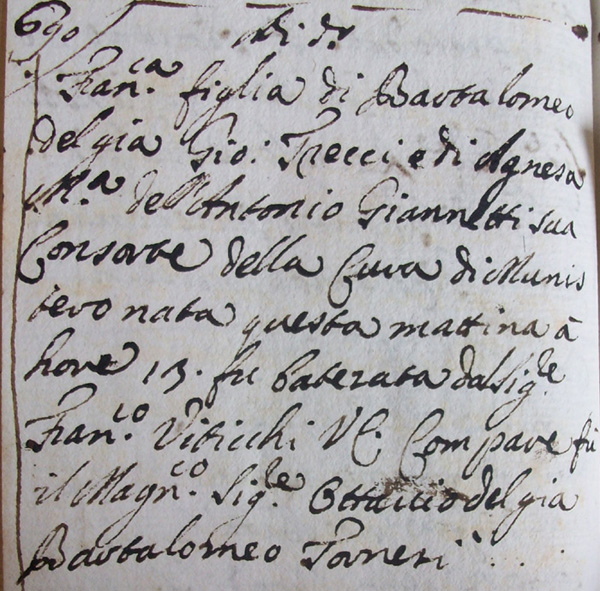 690 Adi d.º
Fran.ca figlia di Bartalomeo
del gia Gio: Trecci e di Agnesa
M.a dell Antonio Giannetti sua
Consorte della Cura di Munis
tero nata questa mattina à
hore 13. fu baterata dal Sig.re
Fran.co Viticchi VC. Compare fù
il Magn.co Sig.re Ottavio del gia
Bartalomeo Parneri